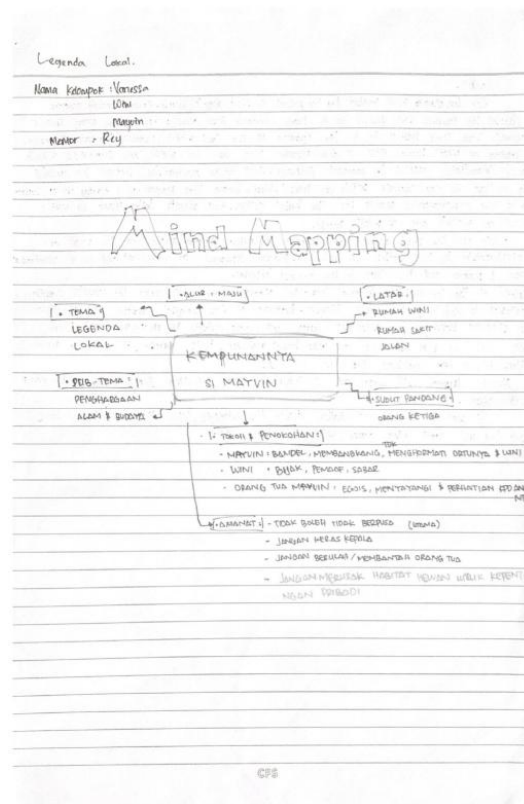 Legenda Lokal.
Nama Kelompok : Vanessa
Wini
Mentor : Rey
Mind Mapping
• ALUR : MAJU
• TEMA :
LEGENDA
LOKAL
• LATAR :
RUMAH WINI
RUMAH SAKIT
JALAN
KEMPUNANNYA
SI MATVIN
• SUB-TEMA :
PENGHARGAAN
ALAM & BUDAYA
• SUDUT PANDANG :
ORANG KETIGA
• TOKOH & PENOKOHAN :
TDK
• MATVIN : BANDEL, MEMBANGKANG, MENGHORMATI ORTUNYA & WINI
• WINI : BIJAK, PEMAAF, SABAR
• ORANG TUA MATVIN : EGOIS, MENYAYANGI & PERHATIAN
• AMANAT : - TIDAK BOLEH TIDAK BERPUSA
- JANGAN KERAS KEPALA
- JANGAN BERULAS / MEMBANTAH ORANG TUA
- JANGAN MERUSAK HABITAT HEWAN UNTUK KEPENT
NGAN PRIBADI